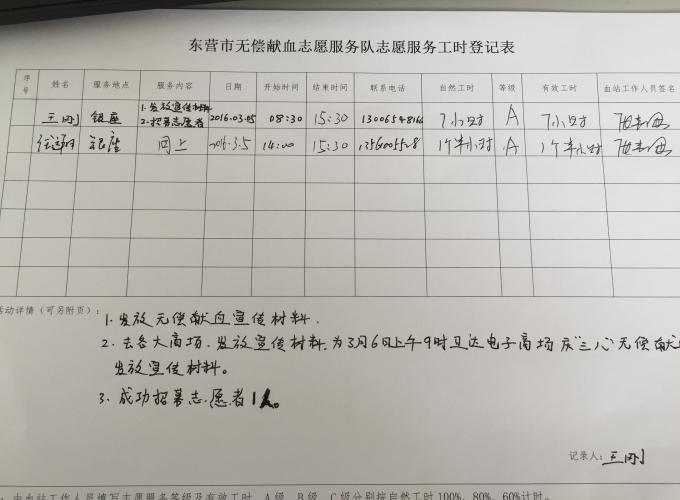 东营市无偿献血志愿服务队志愿服务工时登记表
序号 姓名 服务地点 服务内容 日期 开始时间 结束时间 联系电话 自然工时 等级 有效工时 血站工作人员签名
王刚 银座 1.发放宣传材料 2.招募志愿者 2016.03.05 08:30 15:30 7小时 A 7小时
银座 同上 2016.3.5 14:00 15:30 1个半小时 A 1个半小时
活动详情（可另附页）：
1.发放无偿献血宣传材料.
2.去各大商场.发放宣传材料.为3月6日上午9时卫达电子商场庆"三八"无偿献血
发放宣传材料。
3.成功招募志愿者1人。
记录人：王刚
：由血站工作人员填写志愿服务等级及有效工时，A级、B级、C级分别按自然工时100%、80%、60%计时。